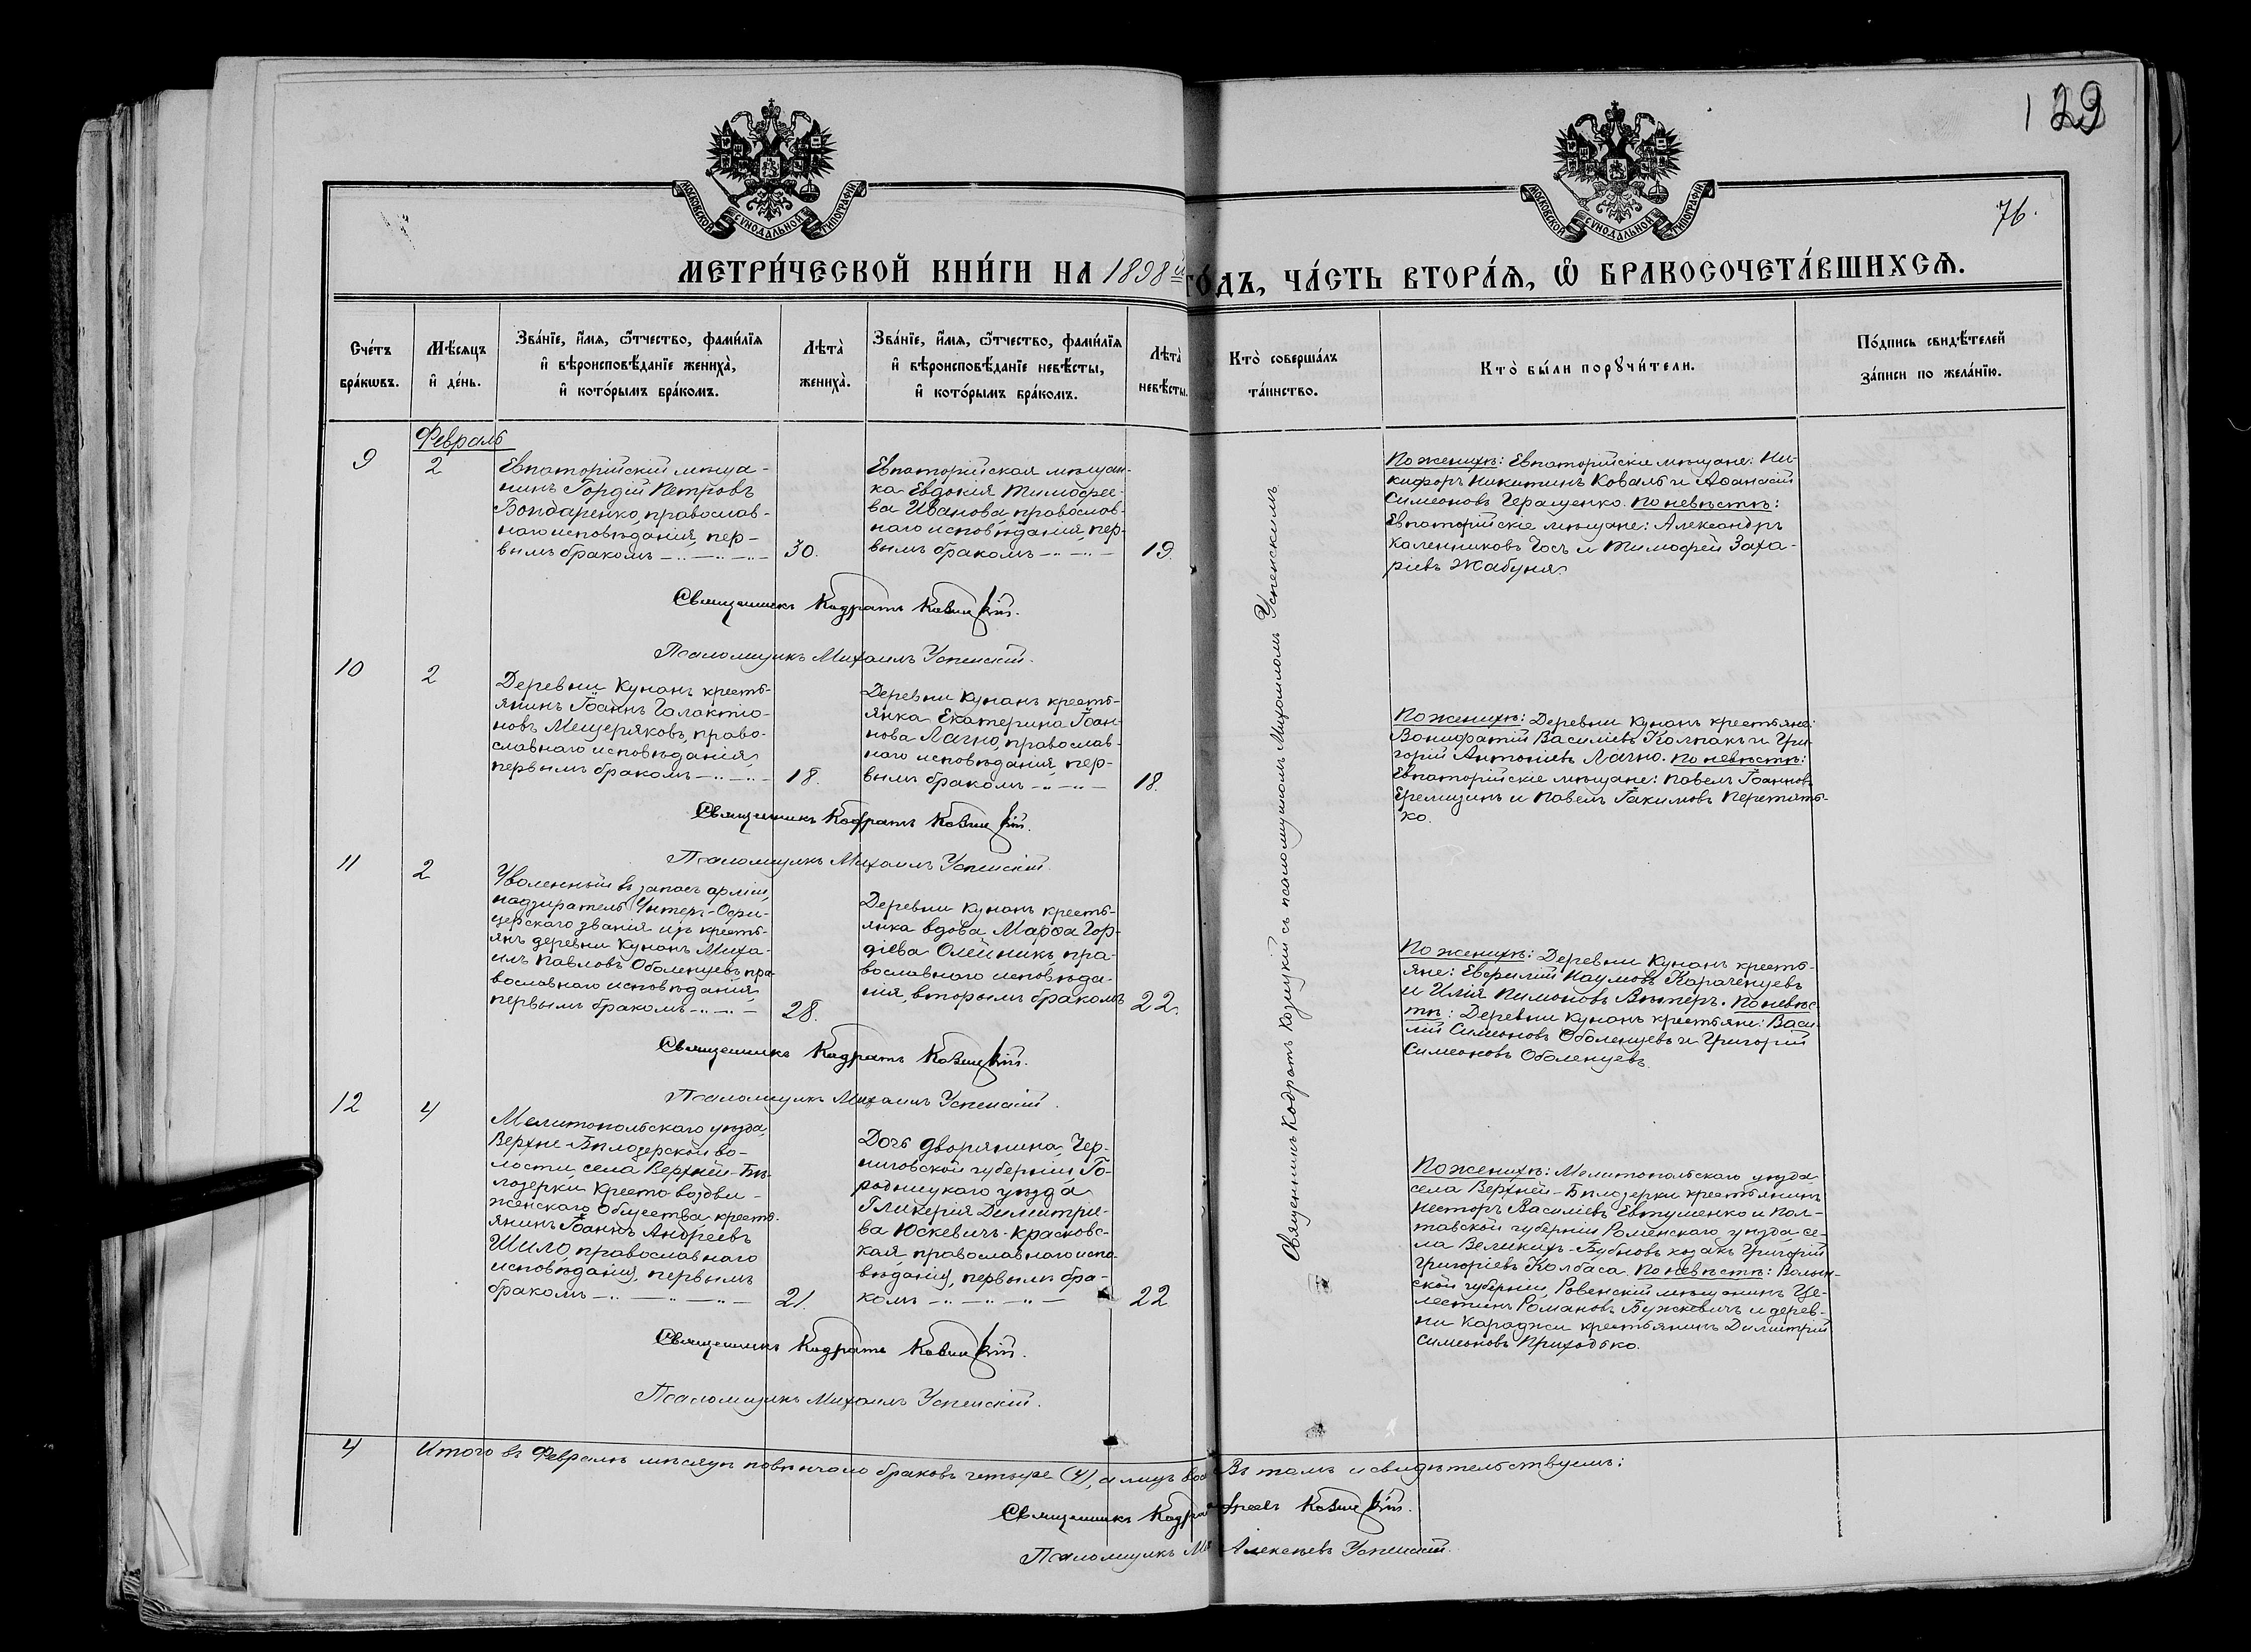 129
76.
МОСКОВСКОЙ СѴНОДАЛЬНОЙ ТИПОГРАФІИ
МОСКОВСКОЙ СѴНОДАЛЬНОЙ ТИПОГРАФІИ
МЕТРИ́ЧЕСКОЙ КНИ́ГИ НА 1898й ГО́ДЪ, ЧА́СТЬ ВТОРА́Ѧ, Ѡ҆ БРАКОСОЧЕТА́ВШИХСѦ.
Сче́тъ
бра́кѡвъ.
Мѣ́сяцъ
и҆ де́нь.
Зва́нїе, и҆́мя, ѻ҆́тчество, фами́лїя
и҆ вѣроисповѣ́данїе жениха̀,
и҆ кото́рымъ бра́комъ.
Лѣта̀
жениха̀.
Зва́нїе, и҆́мя, ѻ҆́тчество, фами́лїя
и҆ вѣроисповѣ́данїе невѣ́сты,
и҆ кото́рымъ бра́комъ.
Лѣта̀
невѣ́сты.
Кто̀ соверша́лъ
та́инство.
Кто̀ бы́ли порꙋчи́тели.
По́дпись свидѣ́телей
за́писи по жела́нїю.
Февраль
9
2
Евпаторійскій мѣща-
нинъ Гордій Петровъ
Бондаренко, православ-
наго исповѣданія, пер-
вымъ бракомъ
30.
Евпаторійская мѣщан-
ка Евдокія Тимофее-
ва Иванова, православ-
наго исповѣданія, пер-
вымъ бракомъ
19.
По женихѣ: Евпаторійскіе мѣщане: Ни-
кифоръ Никитинъ Коваль и Аѳанасій
Симеоновъ Геращенко. По невѣстѣ:
Евпаторійскіе мѣщане: Александръ
Каленниковъ Гось и Тимофей Заха-
ріевъ Жабуня.
Священникъ Кодратъ Козицкій.
Псаломщикъ Михаилъ Успенскій.
10
2
Деревни Кунанъ кресть-
янинъ Іоаннъ Галактіо-
новъ Мещеряковъ, право-
славнаго исповѣданія,
первымъ бракомъ
18.
Деревни Кунанъ кресть-
янка Екатерина Іоан-
нова Лачно, православ-
наго исповѣданія, пер-
вымъ бракомъ
18.
По женихѣ: Деревни Кунанъ крестьяне:
Вонифатій Василіевъ Колпакъ и Гри-
горій Антоніевъ Лачно. По невѣстѣ:
Евпаторійскіе мѣщане: Павелъ Іоанновъ
Еремизинъ и Павелъ Іакимовъ Перетять-
ко.
Священникъ Кодратъ Козицкій.
Псаломщикъ Михаилъ Успенскій.
11
2
Уволенный въ запасъ арміи,
надзиратель Унтеръ-Офи-
церскаго званія изъ кресть-
янъ деревни Кунанъ Миха-
илъ Павловъ Оболенцевъ, пра-
вославнаго исповѣданія,
первымъ бракомъ
28.
Деревни Кунанъ кресть-
янка вдова Марѳа Гор-
діева Олейникъ, пра-
вославнаго исповѣда-
нія, вторымъ бракомъ
22.
По женихѣ: Деревни Кунанъ кресть-
яне: Евфилій Наумовъ Караченцевъ
и Илія Пимоновъ Винтеръ. По невѣс-
тѣ: Деревни Кунанъ крестьяне: Васи-
лій Симеоновъ Оболенцевъ и Григорій
Симеоновъ Оболенцевъ.
Священникъ Кодратъ Козицкій.
Псаломщикъ Михаилъ Успенскій.
12
4
Мелитопольскаго уѣзда,
Верхне-Бѣлозерской во-
лости, села Верхней-Бѣ-
лозерки Кресто-воздви-
женскаго Общества кресть-
янинъ Іоаннъ Андреевъ
Шило, православнаго
исповѣданія, первымъ
бракомъ
21.
Дочь дворянина, Чер-
ниговской губерніи, Го-
родницкаго уѣзда
Гликерія Димитріе-
ва Юскевичъ-Красковс-
кая, православнаго испо-
вѣданія, первымъ бра-
комъ
22
По женихѣ: Мелитопольскаго уѣзда
села Верхней-Бѣлозерки крестьянинъ
Несторъ Василіевъ Евтушенко и Пол-
тавской губерніи Роменскаго уѣзда се-
ла Великихъ-Бубновъ козакъ Григорій
Григоріевъ Колбаса. По невѣстѣ: Волын-
ской губерніи, Ровенскій мѣщанинъ Це-
лестинъ Романовъ Бужкевичъ и дерев-
ни Караджи крестьянинъ Димитрій
Симеоновъ Приходько.
Священникъ Кодратъ Козицкій.
Псаломщикъ Михаилъ Успенскій.
Священникъ Кодратъ Козицкій съ псаломщикомъ Михаиломъ Успенскимъ
4
Итого въ Февралѣ мѣсяцѣ повѣнчано браковъ четыре (4), а лицъ Въ томъ и свидѣтельствуемъ:
Священникъ Козицкій.
Псаломщикъ Алексѣевъ Успенскій.